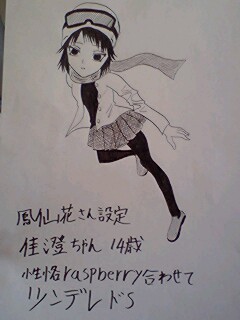 鳳仙花さん設定
佳澄ちゃん 14歳
性格raspberry合わせて
ツンデレドS